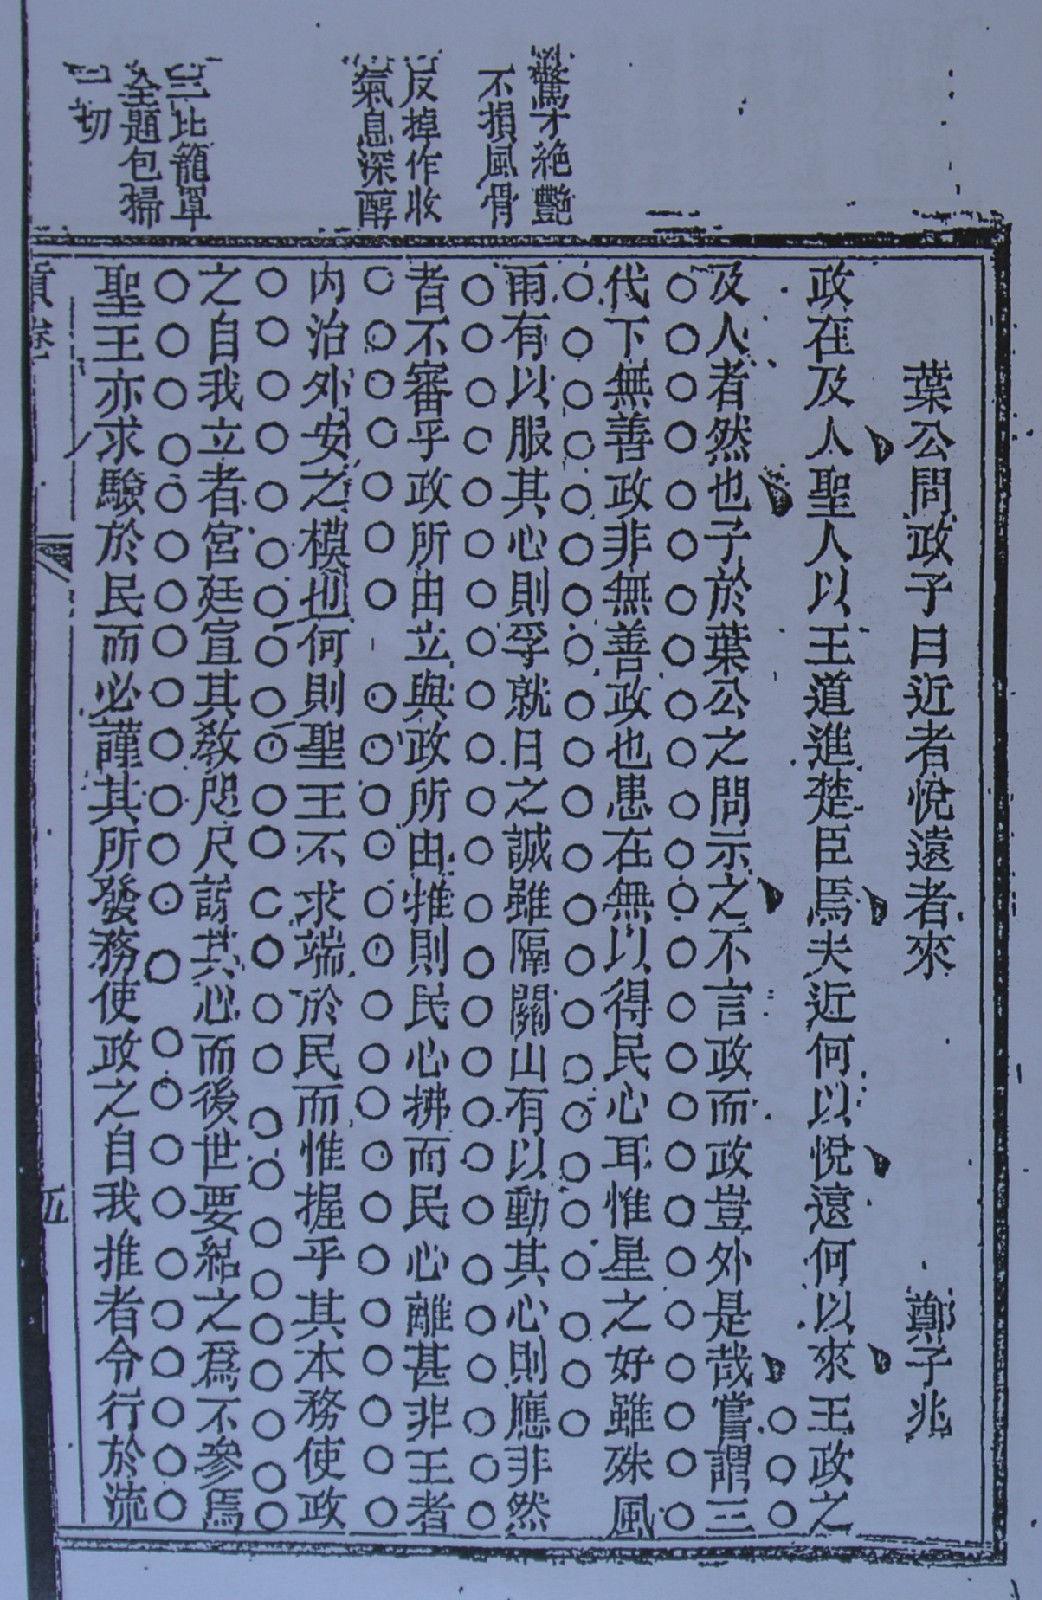 驚才絶艷
不損風骨
反掉作收
氣息深醇
三比籠罩
全題包掃
一切
葉公問政子曰近者悅遠者來
鄭子兆
政在及人聖人以王道進楚臣焉夫近何以悅遠何以來王政之
及人者然也子於葉公之問示之不言政而政豈外是哉嘗謂三
代下無善政非無善政也患在無以得民心耳惟星之好雖殊風
雨有以服其心則孚就日之誠雖隔關山有以動其心則應非然
者不審乎政所由立與政所由推則民心拂而民心離甚非王者
内治外安之模也何則聖王不求端於民而惟握乎其本務使政
之自我立者宮廷宣其教咫尺諒其心而後世要結之爲不參焉
聖王亦求驗於民而必謹其所發務使政之自我推者令行於流
卷
五